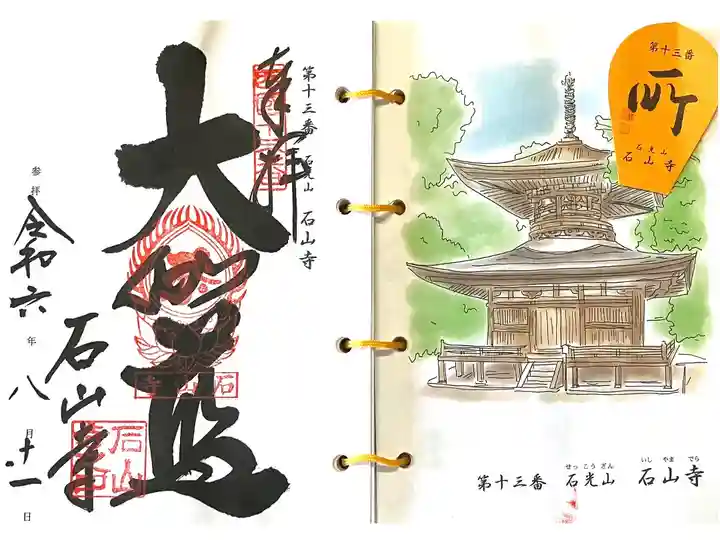 第十三番 石光山 石山寺
奉拝
大悲殿
参拝 令和六年八月十一日
石山寺
石山寺
第十三番
石光山
石山寺
せっこうざん いしやまでら
第十三番 石光山 石山寺